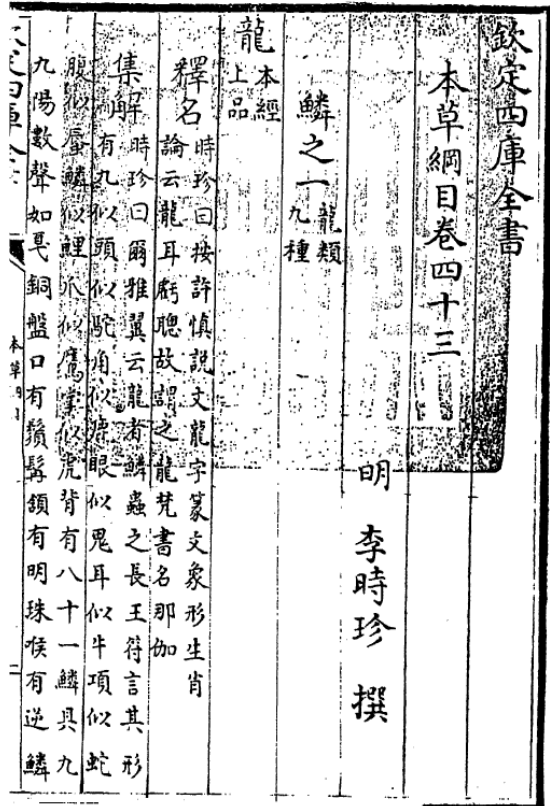 欽定四庫全書
本草綱目卷四十三
明 李時珍 撰
鱗之一 龍類
九種
龍 本經
上品
釋名 時珍曰按許慎說文龍字篆文象形生肖
論云龍耳虧聰故謂之龍梵書名那伽
集解 時珍曰爾雅翼云龍者鱗蟲之長王符言其形
有九似頭似駝角似鹿眼似鬼耳似牛項似蛇
腹似蜃鱗似鯉爪似鷹掌似虎背有八十一鱗具九
九陽數聲如戛銅盤口有鬚髯頷有明珠喉有逆鱗